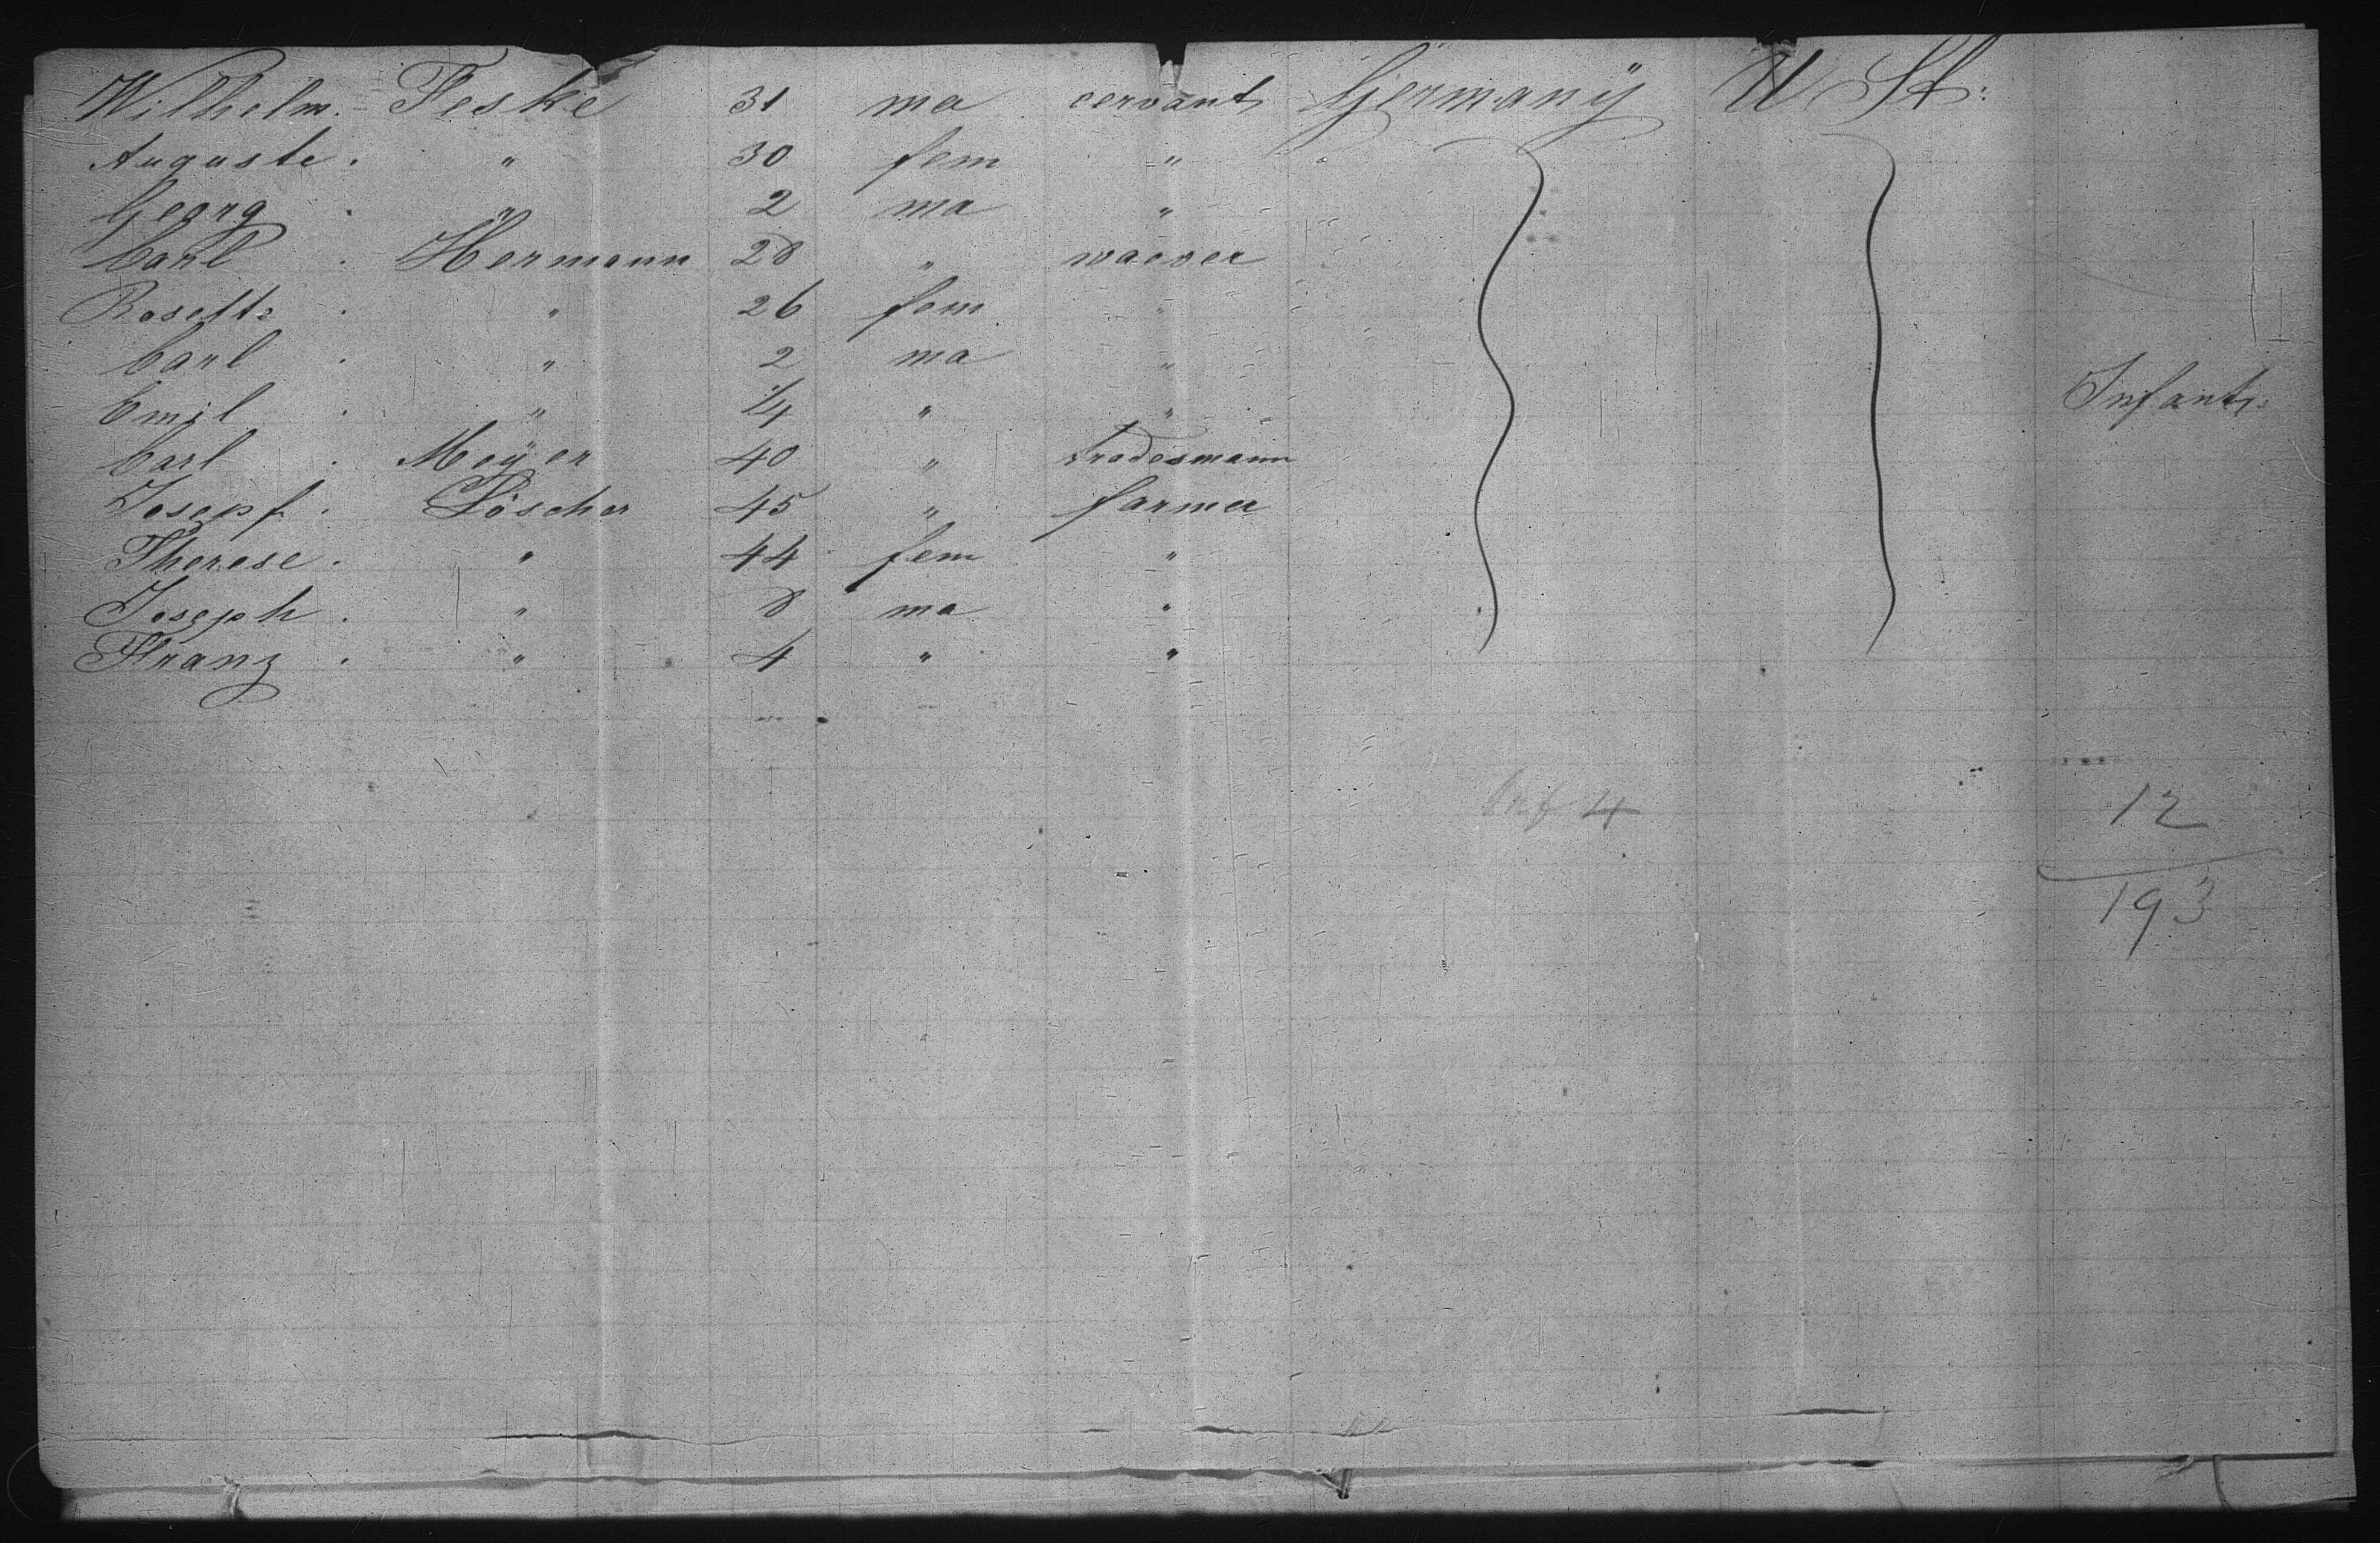 Wilhelm. Feske 31 ma cervant Germanÿ U St:
Auguste. " 30 fem "
Georg . " 2 ma "
Carl . Hermann 28 " waever
Rosette . " 26 fem "
Carl . " 2 ma "
Emil . " 1/4 " " Infant
Carl . Meÿer 40 " tradesmann
Josepf . Löscher 45 " farmer
Therese . " 44 fem "
Joseph . " 8 ma "
Franz . " 4 " "
Inf 4 12
193